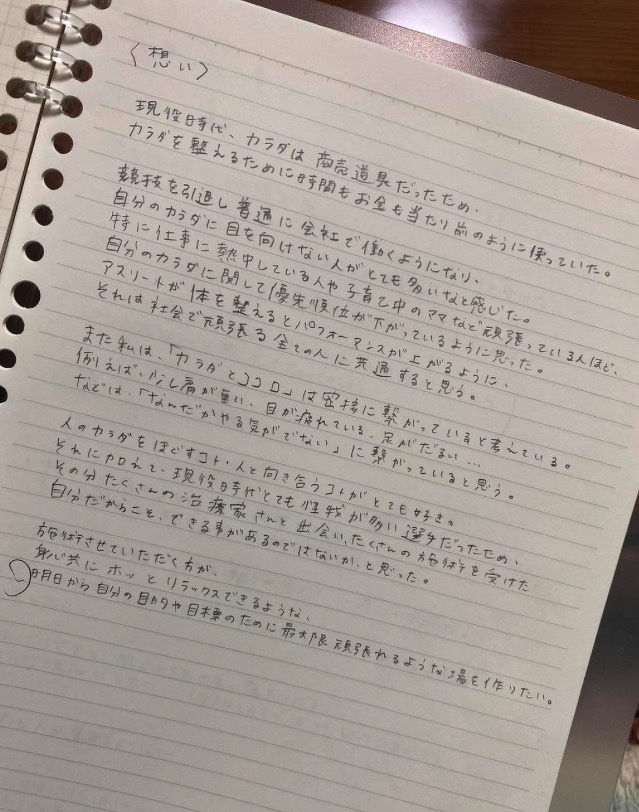 〈想い〉
現役時代、カラダは商売道具だったため、
カラダを整えるために時間もお金も当たり前のように使っていた。
競技を引退し普通に会社で働くようになり、
自分のカラダに目を向けない人がとても多いなと感じた。
特に仕事に熱中している人や子育て中のママなど頑張っている人ほど、
自分のカラダに関して優先順位が下がっているように思った。
アスリートが体を整えるとパフォーマンスが上がるように、
それは社会で頑張る全ての人に共通すると思う。
また私は、「カラダとココロ」は密接に繋がっていると考えている。
例えば、少し肩が重い、目が疲れている、足がだるい…
などは、「なんだかやる気がでない」に繋がっていると思う。
人のカラダをほぐすコト・人と向き合うコトがとても好き。
それに加えて、現役時代とても怪我が多い選手だったため、
その分たくさんの治療家さんと出会い、たくさんの施術を受けた
自分だからこそ、できる事があるのではないか、と思った。
施術させていただく方が、
身心共にホッとリラックスできるような、
明日から自分の目的や目標のために最大限頑張れるような場を作りたい。